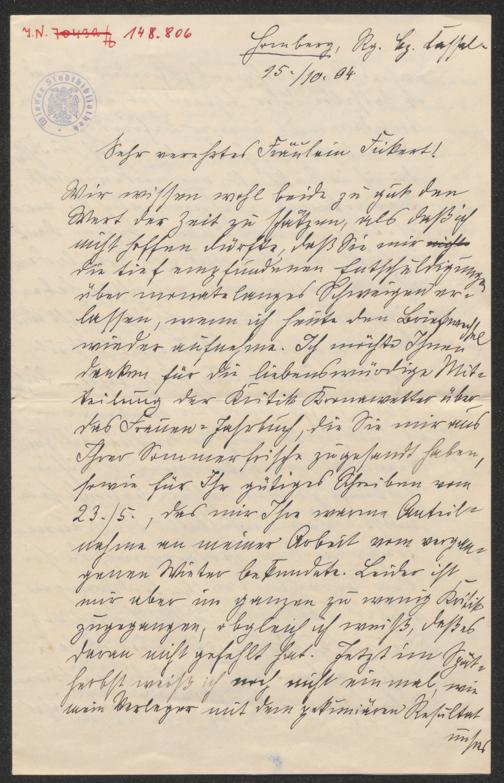 J.N. 70434/6 148.806
Homberg, Rg. Bz. Cassel.
15./10. 04
Wiener Stadtbibliothek
Sehr verehrtes Fräulein Fickert!
Wir wissen wohl beide zu gut den
Wert der Zeit zu schätzen, als daß ich
nicht hoffen dürfte, daß Sie mir nicht
die tief empfundenen Entschuldigungen
über monatelanges Schweigen er-
lassen, wenn ich heute den Briefwechsel
wieder aufnehme. Ich möchte Ihnen
danken für die liebenswürdige Mit-
teilung der Kritik Kronawetter über
das Frauen-Jahrbuch, die Sie mir aus
Ihrer Sommerfrische zugesandt haben,
sowie für Ihr gütiges Schreiben vom
23./5., das mir Ihre warme Anteil-
nahme an meiner Arbeit vom vergan-
genen Winter bekundete. Leider ist
mir aber im ganzen zu wenig Kritik
zugegangen, obgleich ich weiß, daß es
daran nicht gefehlt hat. Jetzt im Spät-
herbst weiß ich noch nicht einmal, wie
mein Verleger mit dem pekuniären Resultat